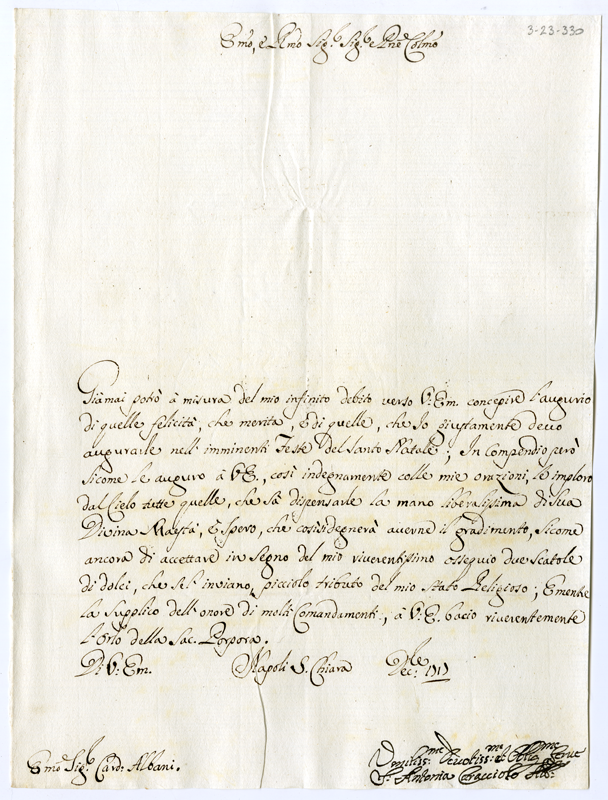 3-23-330
Emo, e Rmo Sig.r Sig.r e Pne Colmo
Giamai potrò à misura del mio infinito debito verso V: Em. concepire l'augurio
di quelle felicità, che merita, e di quelle, che Io giustamente devo
augurarle nell'imminenti Feste del Santo Natale; In compendio però
sicome le auguro à V.E., così indegnamente colle mie orazioni, le imploro
dal Cielo tutte quelle, che sà dispensarle la mano liberalissima di Sua
Divina Maestà, e Spero, che cosi si degnerà averne il gradimento, sicome
ancora di accettare in segno del mio riverentissimo ossequio due Scatole
di dolci, che se l'inviano, picciolo tributo del mio Stato Religioso; E mentre
la supplico dell'onore di molti Comandamenti, à V. E. bacio riverentemente
l'Orlo della Sac. Porpora.
Di V: Em. Napoli S. Chiara Dec.
Emo Sig.r Card: Albani.
Devotiss:
Antonia Caracciolo